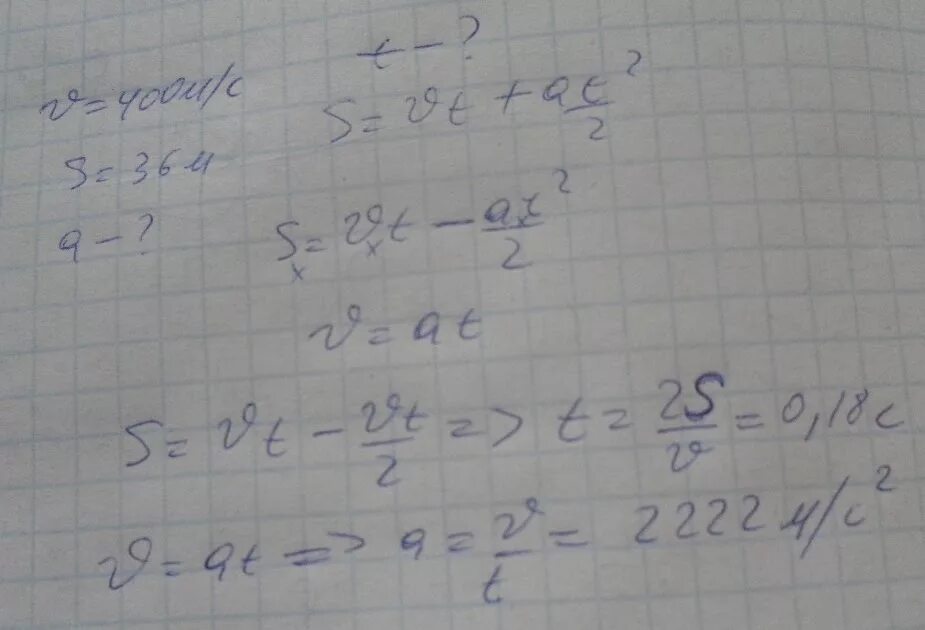 t - ?
v = 400 м/с
S = vt + at²/2
S = 36 м
a - ?
Sₓ = vₓt - at²/2
v = at
S = vt - vt/2 => t = 2S/v = 0,18 с
v = at => a = v/t = 2222 м/с²